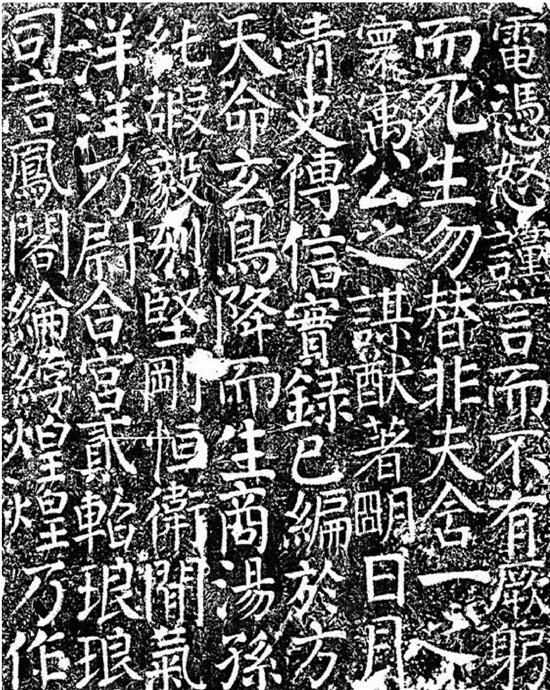 電憑怒謹言而不有厥躬
而死生勿替非夫含一
寰寓公之謀猷著朙日月
青史傳信實錄已編於方
天命玄鳥降而生商湯孫
純嘏毅烈堅剛恒衛閒氣
洋洋乃尉合宮貳軺琅琅
司言鳳閣綸綍煌煌乃作